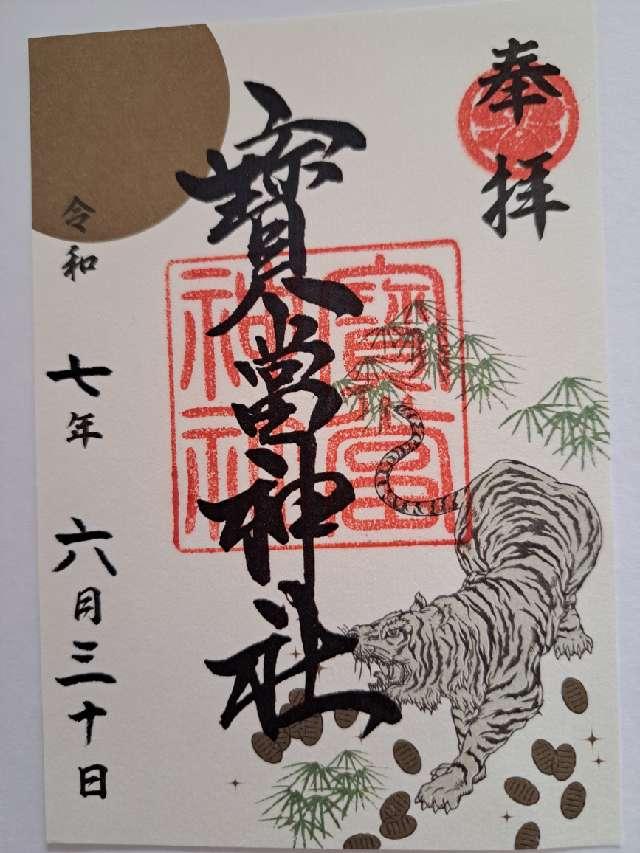 奉拝
寳當神社
寳當
神社
令和七年六月三十日